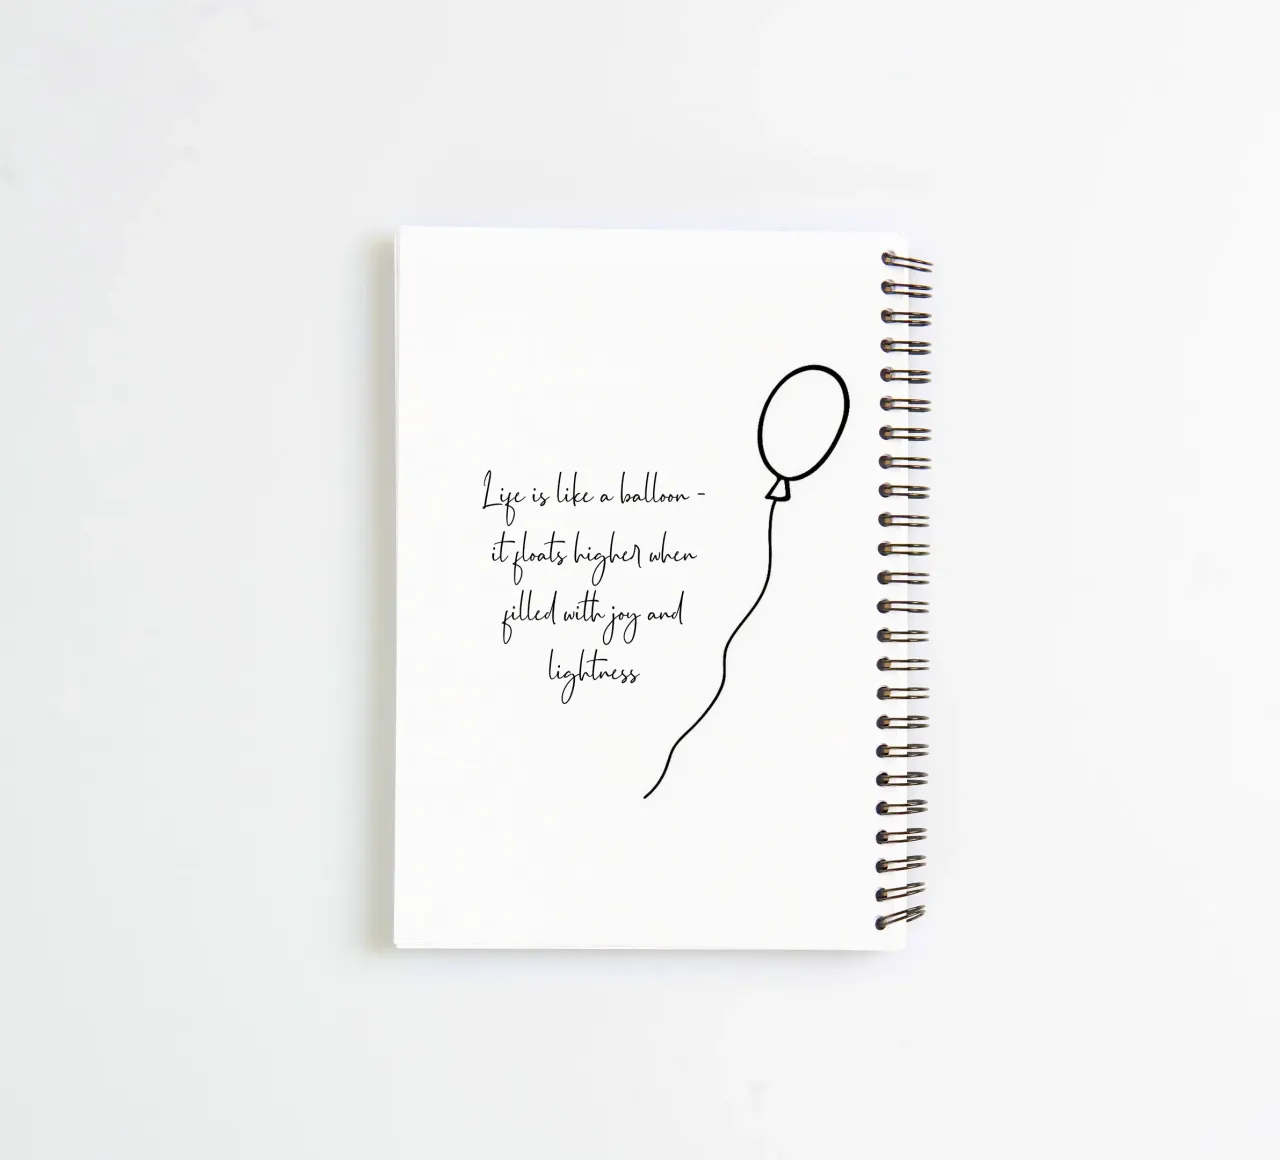 Life is like a balloon -
it floats higher when
filled with joy and
lightness